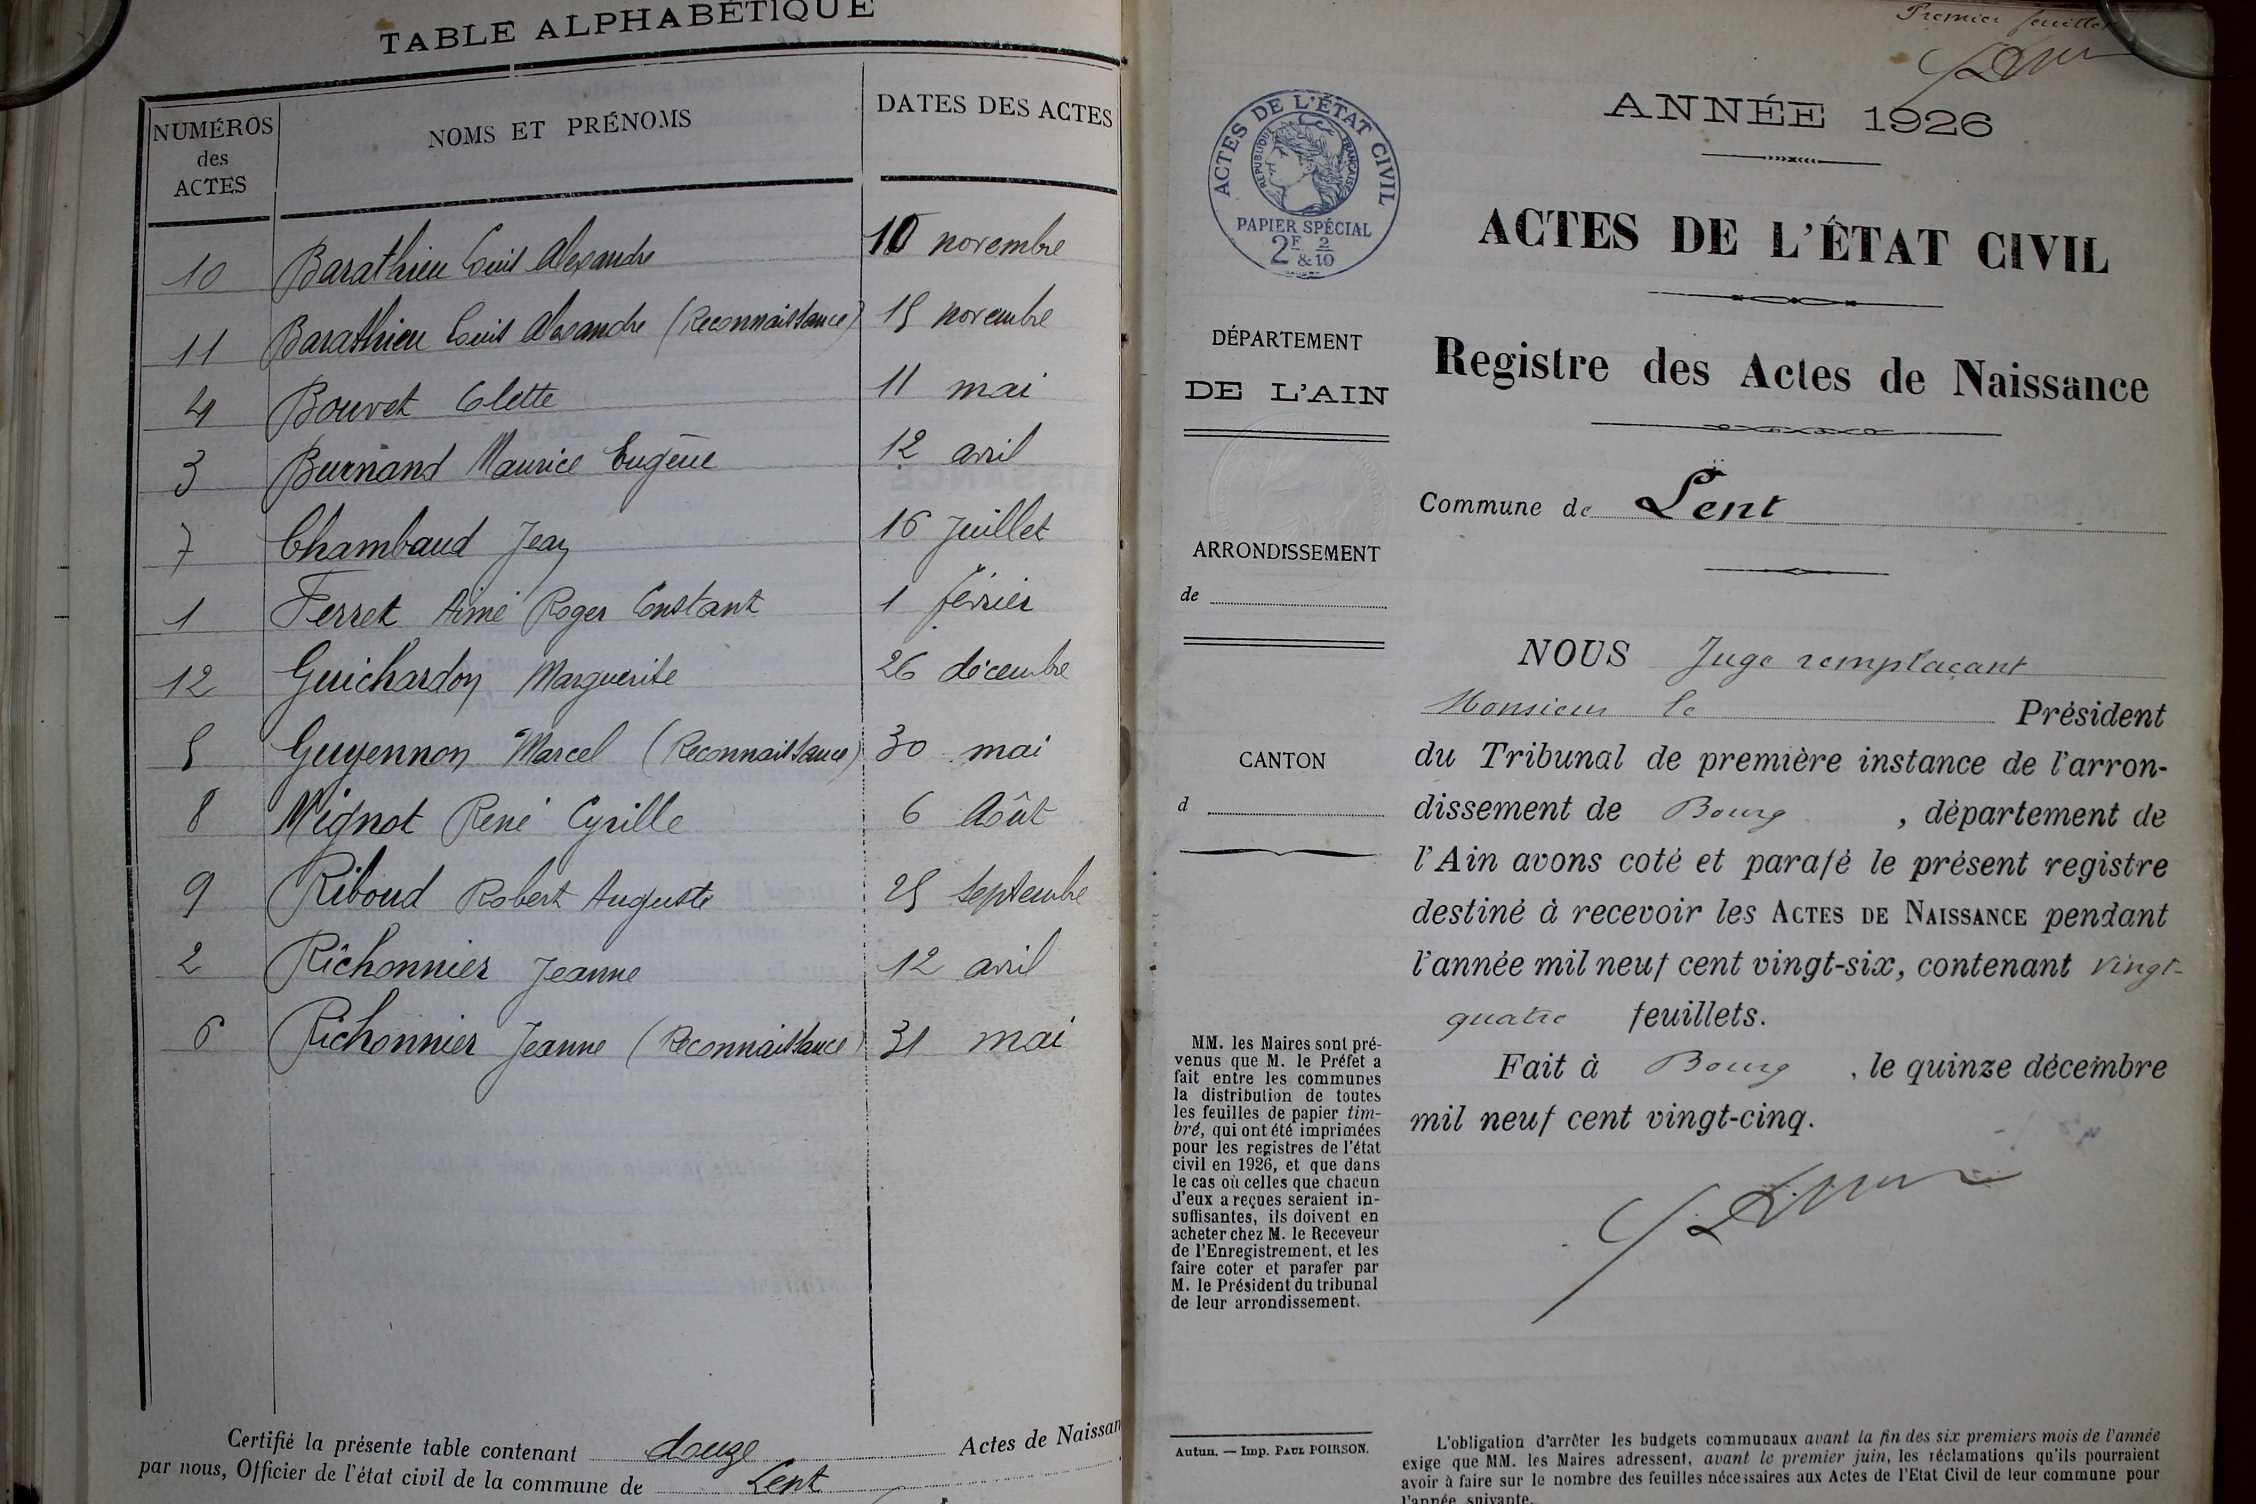 TABLE ALPHABÉTIQUE
NUMÉROS des ACTES
NOMS ET PRÉNOMS
DATES DES ACTES
10 Barathieu Louis Alexandre 10 novembre
11 Barathieu Louis Alexandre (Reconnaissance) 15 novembre
4 Bouvet Colette 11 mai
3 Burnand Maurice Eugène 12 avril
7 Chambaud Jean 16 Juillet
1 Ferret Aimé Roger Constant 1 février
12 Guichardon Marguerite 26 décembre
5 Guyennon Marcel (Reconnaissance) 30 mai
8 Mignot René Cyrille 6 Août
9 Riboud Robert Auguste 25 septembre
2 Richonnier Jeanne 12 avril
6 Richonnier Jeanne (Reconnaissance) 31 mai
Certifié la présente table contenant douze Actes de Naissan
par nous, Officier de l'état civil de la commune de Lent
Premier feuillet
ANNÉE 1926
ACTES DE L'ÉTAT CIVIL
RÉPUBLIQUE FRANÇAISE
PAPIER SPÉCIAL
2F & 2/10
ACTES DE L'ÉTAT CIVIL
Registre des Actes de Naissance
DÉPARTEMENT
DE L'AIN
Commune de Lent
ARRONDISSEMENT
de
CANTON
d
NOUS Juge remplaçant
Monsieur le Président
du Tribunal de première instance de l'arron-
dissement de Bourg, département de
l'Ain avons coté et parafé le présent registre
destiné à recevoir les ACTES DE NAISSANCE pendant
l'année mil neuf cent vingt-six, contenant vingt-
quatre feuillets.
Fait à Bourg, le quinze décembre
mil neuf cent vingt-cinq.
MM. les Maires sont pré-
venus que M. le Préfet a
fait entre les communes
la distribution de toutes
les feuilles de papier tim-
bré, qui ont été imprimées
pour les registres de l'état
civil en 1926, et que dans
le cas où celles que chacun
d'eux a reçues seraient in-
suffisantes, ils doivent en
acheter chez M. le Receveur
de l'Enregistrement, et les
faire coter et parafer par
M. le Président du tribunal
de leur arrondissement.
Autun. — Imp. PAUL POIRSON.
L'obligation d'arrêter les budgets communaux avant la fin des six premiers mois de l'année
exige que MM. les Maires adressent, avant le premier juin, les réclamations qu'ils pourraient
avoir à faire sur le nombre des feuilles nécessaires aux Actes de l'Etat Civil de leur commune pour
l'année suivante.